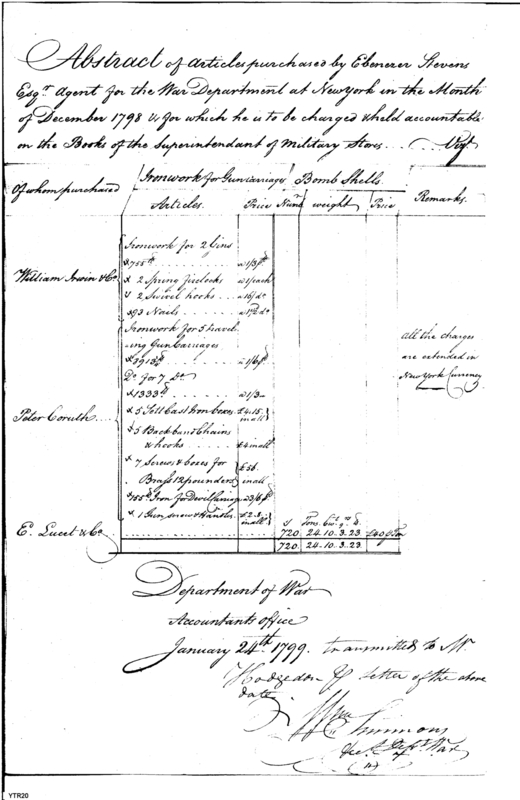 Abstract of articles purchased by Ebenezer Stevens
Esqr. Agent for the War Department at New York in the Month
of December 1798 & for which he is to be charged & held accountable
on the Books of the Superintendant of Military Stores . . . Vizt
Of whom purchased
Ironwork for Gun carriage
Bomb Shells.
Remarks.
Articles.
Price
Numr.
weight
Price
William Irwin & Co.
Ironwork for 2 Gins
755 lb
a 1/3 p lb
2 Spring
a 1 p each
2 Swivel hooks
a 16/ do
93 Nails
Ironwork for 5 travel-
-ing Gun Carriages
3913 lb
a 1/6 p lb
Do. for 7 Do.
1333 lb
a 1/3
Peter Coruth
5 Sett Cast Iron boxes
£4.15.
in all
5 Back band Chains
& hooks
£4 in all
7 Screws & boxes for
Brass 12 pounders
£56.
in all
755 lb Iron for Devil Carriage
1 Gun screw & Handles
£2.8.
in all
All the charges
are extended in
New York Currency
E. Lucet & Co.
Tons. Cwt. qr. lb.
720
24. 10. 3. 23
£40 p Ton
720.
24. 10. 3. 23.
Department of War
Accountants office
January 24th. 1799. transmitted to Mr.
Hodgdon p letter of the above
date.
Wm Simmons
Acct. Dept. War
YTR20